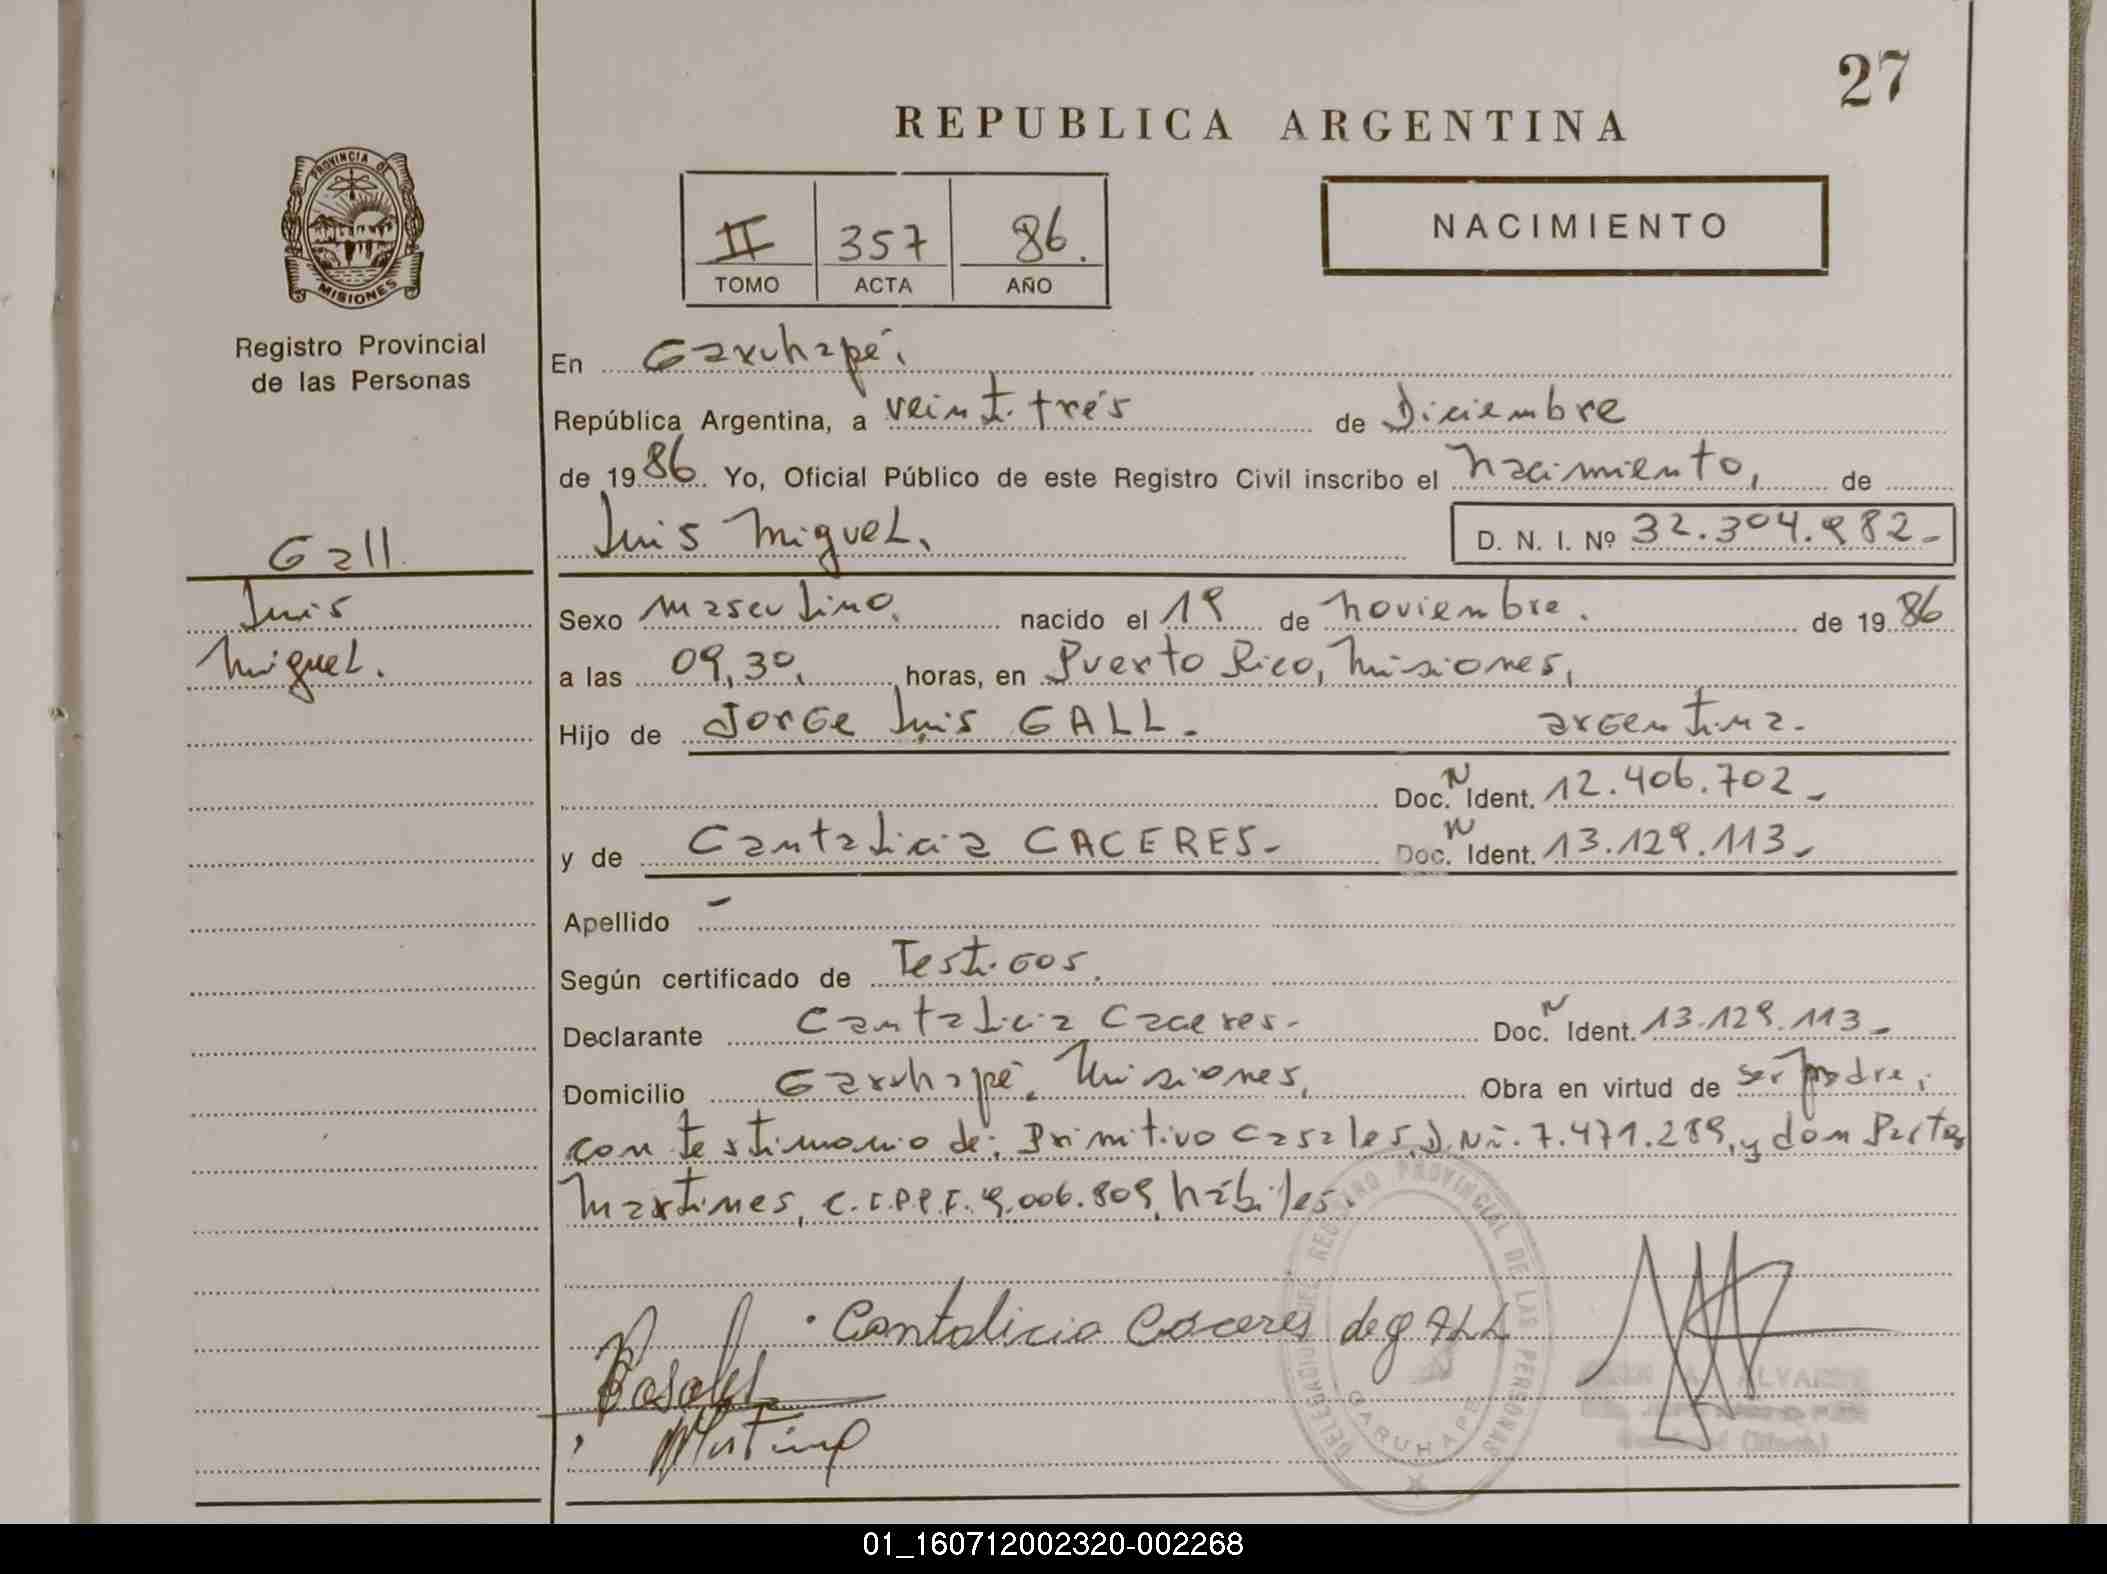 27
REPUBLICA ARGENTINA
PROVINCIA DE
MISIONES
Registro Provincial
de las Personas
II 357 86.
TOMO ACTA AÑO
NACIMIENTO
En Garuhapé.
República Argentina, a veintitrés de Diciembre
de 1986. Yo, Oficial Público de este Registro Civil inscribo el nacimiento, de
Luis Miguel. D. N. I. Nº 32.304.982-
Gall
Luis
Miguel.
Sexo masculino. nacido el 19 de noviembre. de 1986
a las 09,30, horas, en Puerto Rico, Misiones,
Hijo de Jorge Luis GALL. argentina.
Doc. N Ident. 12.406.702-
y de Cantalicia CACERES- Doc. N Ident. 13.129.113-
Apellido -
Según certificado de Testigos.
Declarante Cantalicia Caceres- Doc. N Ident. 13.129.113-
Domicilio Garuhapé, Misiones, Obra en virtud de ser madre,
con testimonio de: Primitivo Casales, D.Ni. 7.471.289, y don
Martines, 9.006.809, hábiles.
Cantalicia Caceres de gALL
Casales
Martinez
DELEGACION DEL REGISTRO PROVINCIAL DE LAS PERSONAS
GARUHAPE
01_160712002320-002268